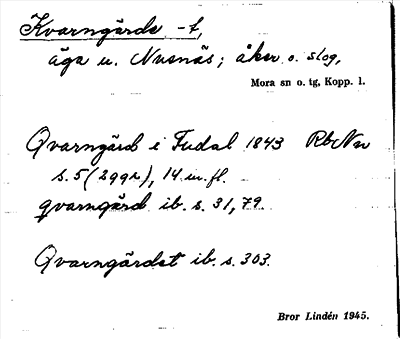 Kvarngärde -t,
äga u. Nusnäs; åker o. slog,
Mora sn o. tg, Kopp. l.
Qvarngärd i Fudal 1843 RbNu
s. 5 (2 ggr), 14 m. fl.
qvarngärd ib. s. 31, 79.
Qvarngärdet ib. s. 303.
Bror Lindén 1945.